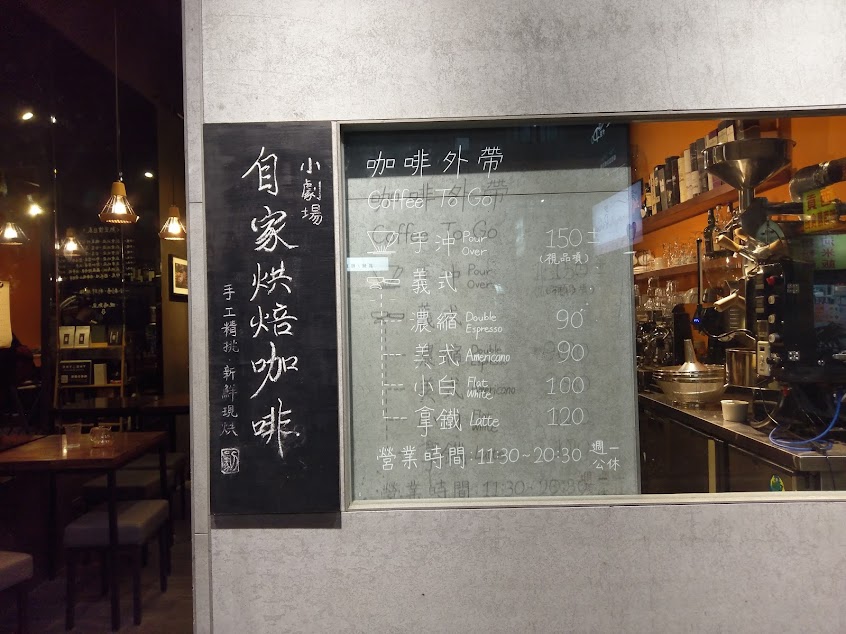 小劇場
自家烘焙咖啡
手工精挑·新鮮現烘
劇
咖啡外帶
Coffee To Go
手沖 Pour Over 150±
(視品項)
義式
濃縮 Double Espresso 90
美式 Americano 90
小白 Flat White 100
拿鐵 Latte 120
營業時間:11:30~20:30 週一公休